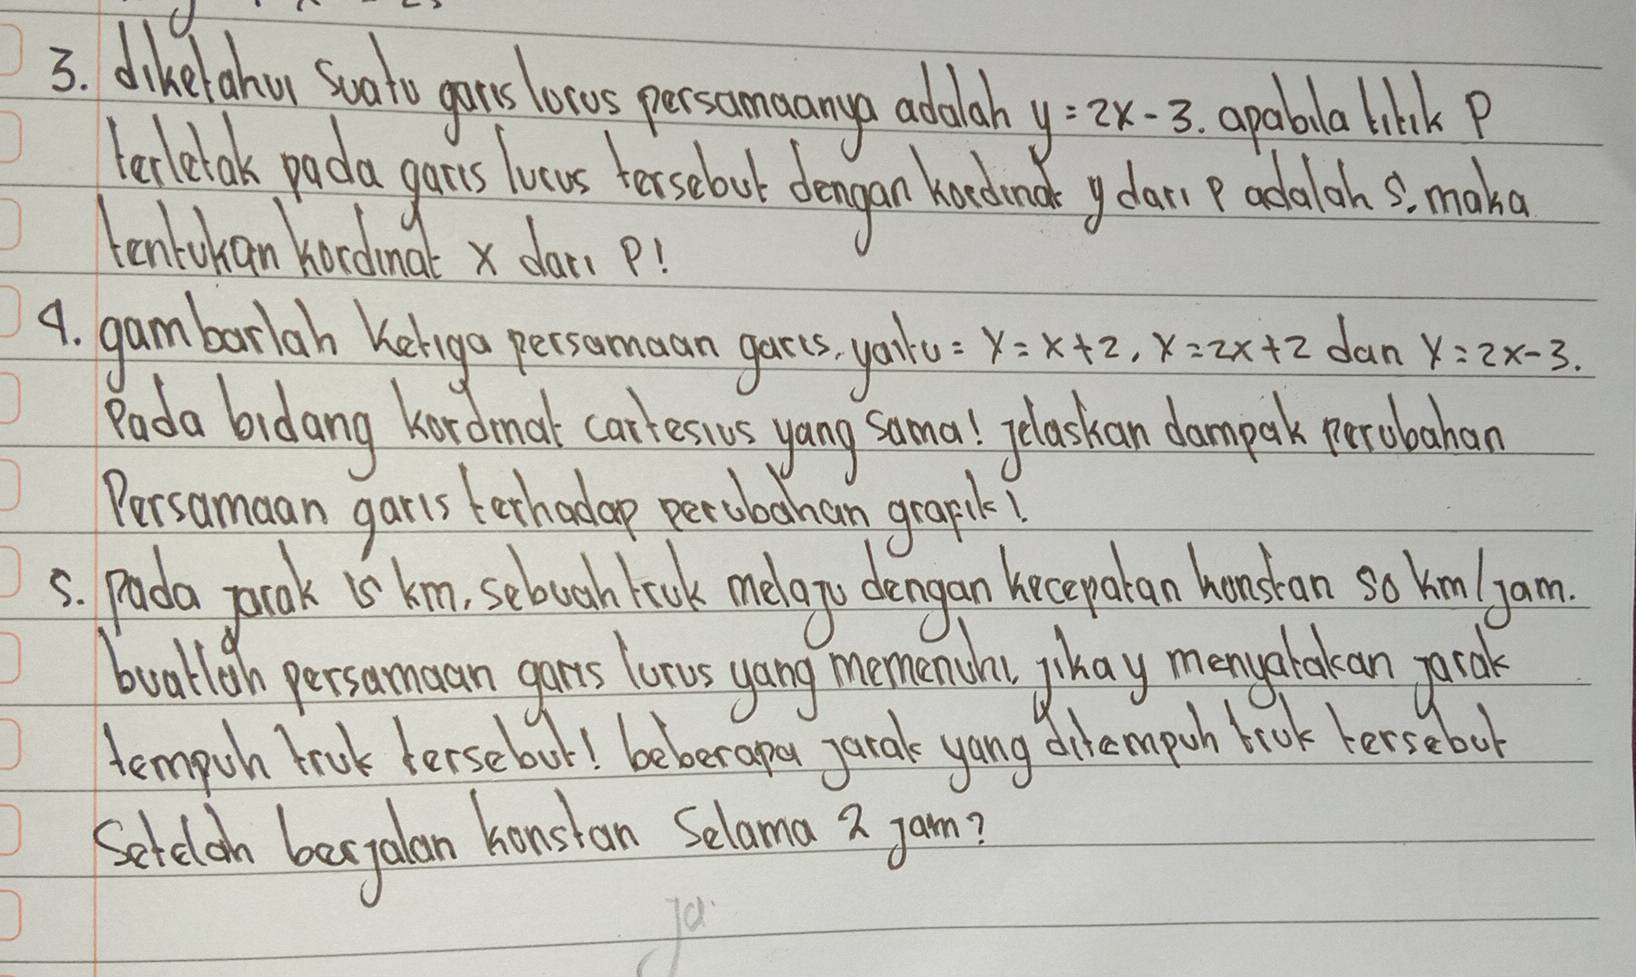 3. diketahui suatu garis lurus persamaanya adalah y = 2x - 3. apabila titik P
terletak pada garis lurus tersebut dengan koordinat y dari P adalah 5. maka
tentukan kordinat x dari P!
4. gambarlah ketiga persamaan garis, yaitu = Y = x + 2, Y = 2x + 2 dan Y = 2x - 3.
Pada bidang kordinat cartesius yang sama! jelaskan dampak perubahan
Persamaan garis terhadap perubahan grafik!
5. Pada jarak 15 km, sebuah truk melaju dengan kecepatan konstan 50 km/jam.
buatlah persamaan garis lurus yang memenuhi, jika y menyatakan jarak
tempuh truk tersebut! beberapa jarak yang ditempuh truk tersebut
Setelah berjalan konstan Selama 2 jam?
ja